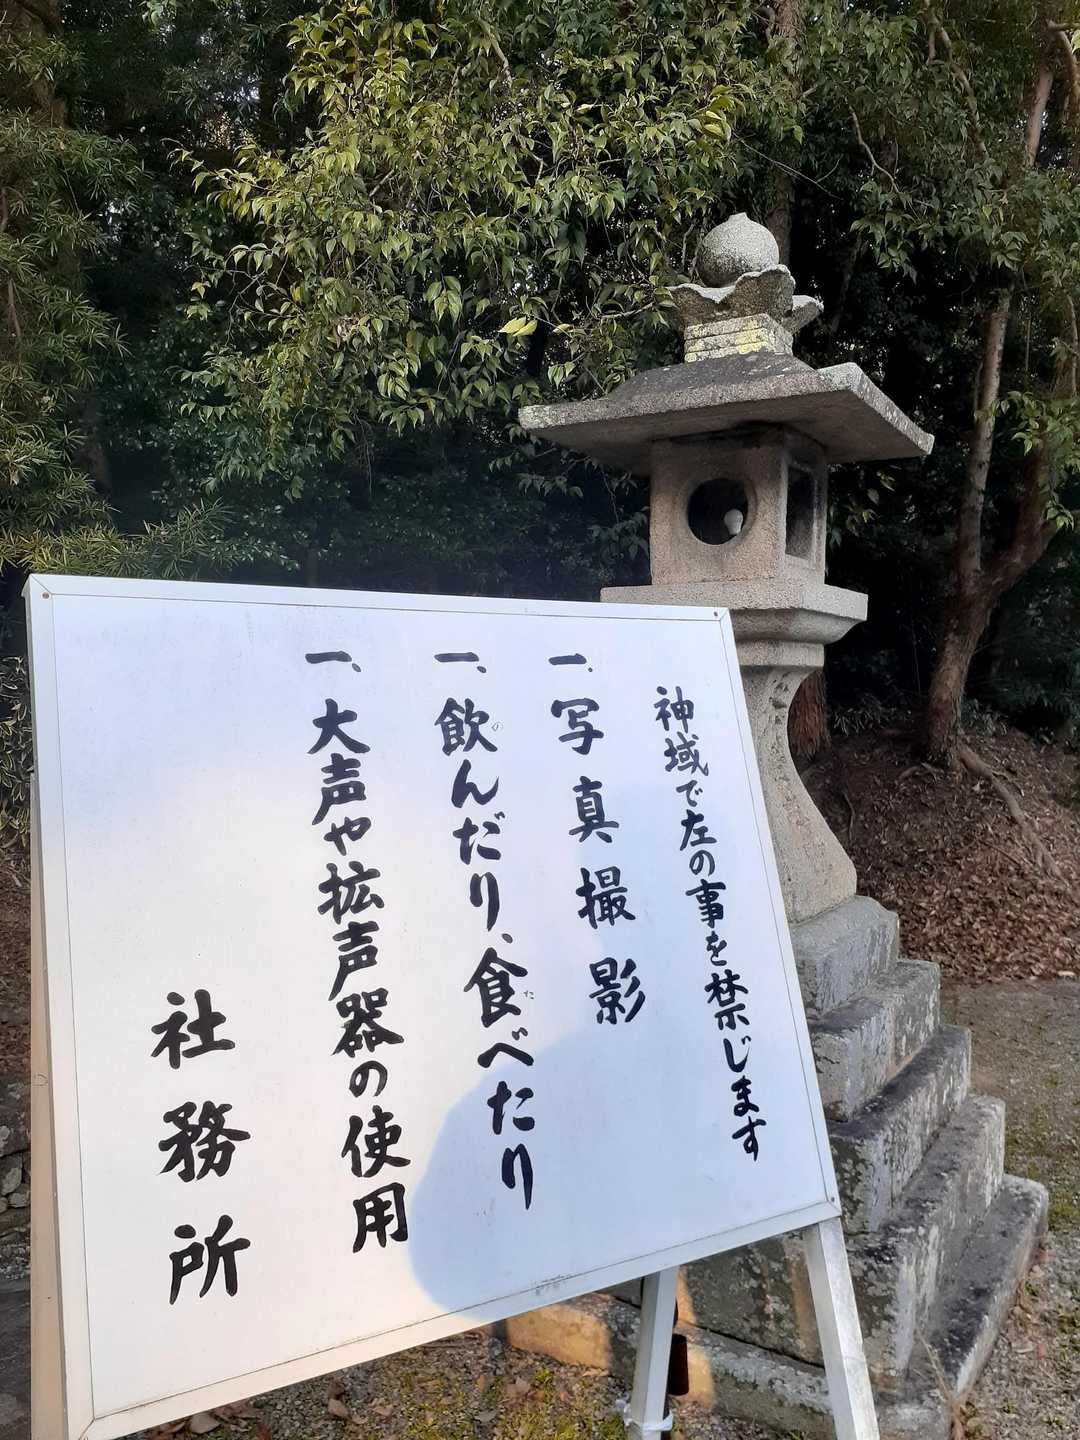 神域で左の事を禁じます
一.写真撮影
一、飲んだり、食べたり
一、大声や拡声器の使用
社務所